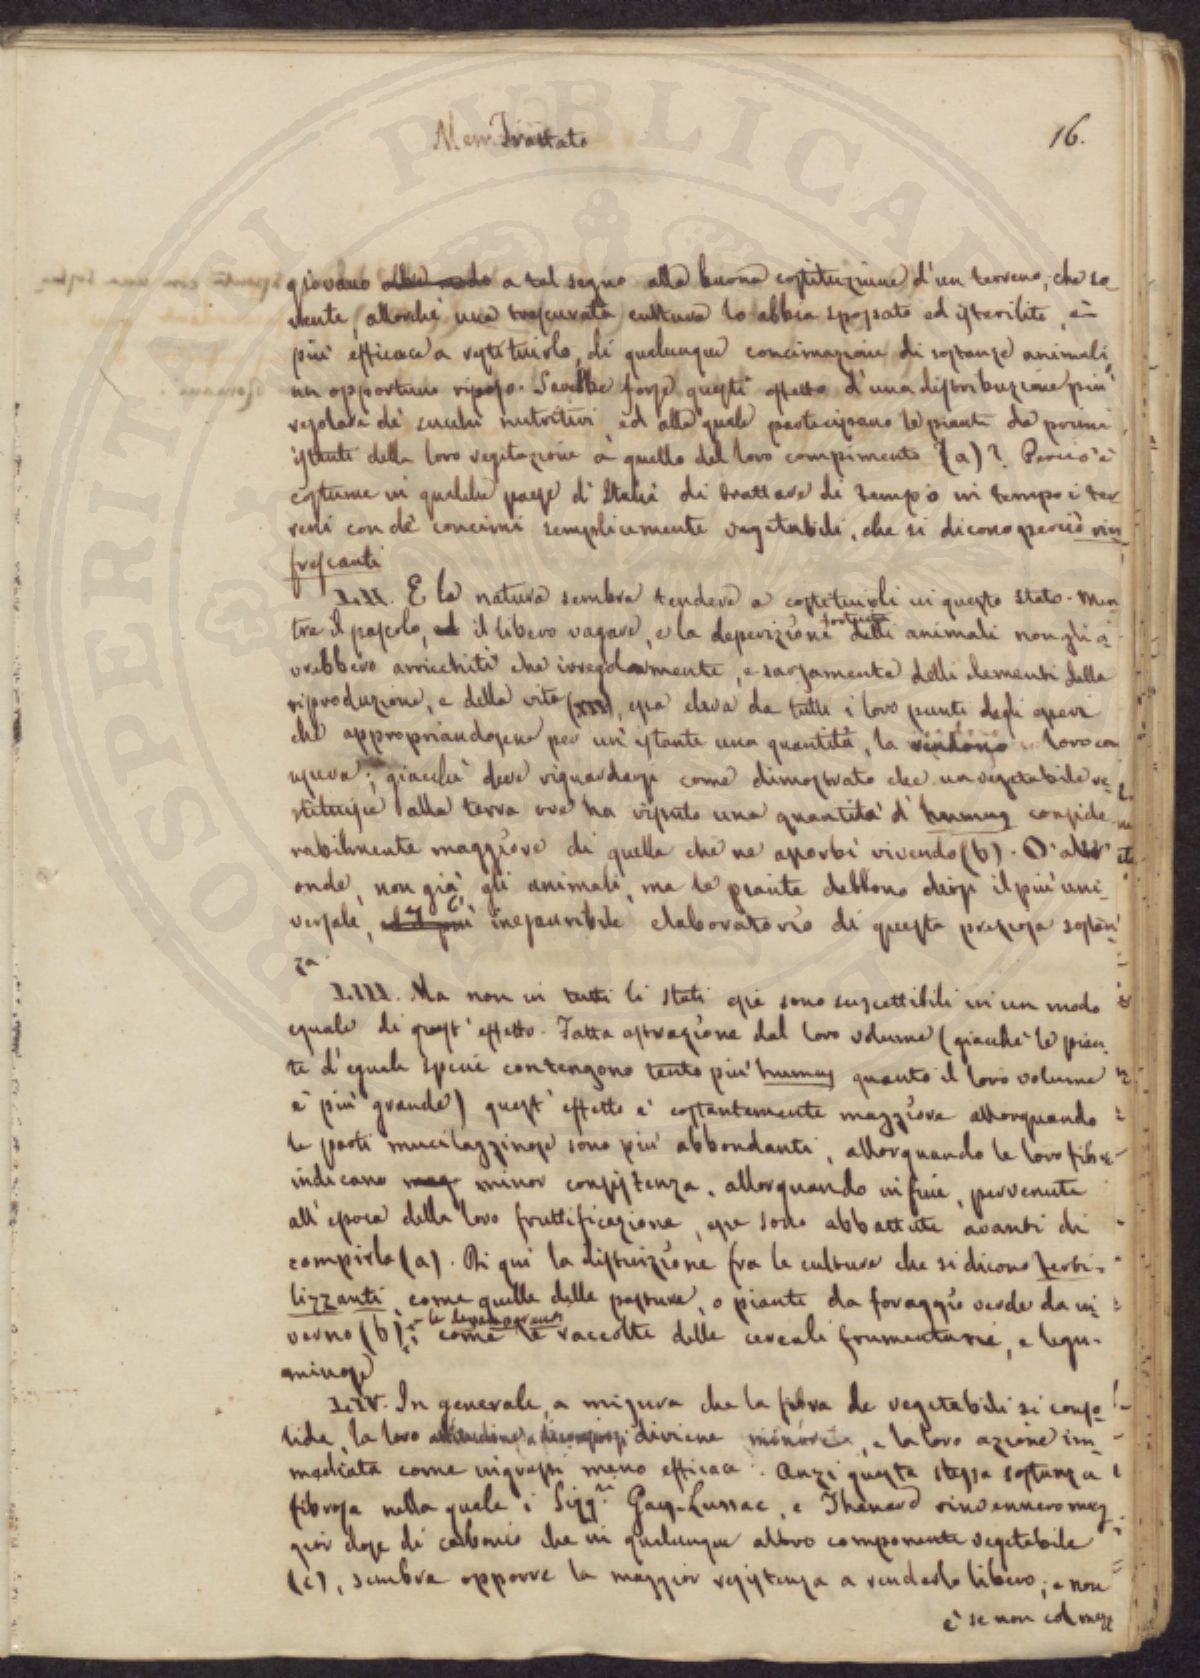 Mem. Trattato
16.
giovano oltre modo a tal segno alla buona costituzione d'un terreno, che so-
vente, allorchè una trascurata cultura lo abbia spossato ed isterilito, è
più efficace a restituirlo, di qualunque concimazione di sostanze animali
un opportuno riposo. Sarebbe forse questi effetto d'una distribuzione più
regolare de' succhi nutritivi, ed alla quale partecipano le piante da primi
istanti della loro vegetazione a quello del loro compimento (a)? Perciò è
costume in qualche paese d'Italia di trattare di tempo in tempo i ter-
reni con de' concimi semplicemente vegetabili, che si dicono perciò rin-
frescanti
LII. E la natura sembra tendere a costituirli in questo stato. Men-
tre il pascolo, ed il libero vagare, e la deperizione fortuita delli animali non gli a-
vrebbero arricchiti che irregolarmente, e scarsamente delli elementi della
riproduzione, e della vita (XXX), essa eleva da tutti i loro punti degli esseri
che appropriandosene per un'istante una quantità, la rendono loro con
usura; giacchè deve riguardarsi come dimostrato che un vegetabile re-
stituisce alla terra ove ha vissuto una quantità d'humus conside-
rabilmente maggiore di quella che ne assorbì vivendo (b). D'altr'
onde, non già gli animali, ma le piante debbono dirsi il più uni-
versale, ed il più inesauribile elaboratorio di questa preziosa sostan-
za.
LIII. Ma non in tutti li stati esse sono suscettibili in un modo
eguale di quest'effetto. Fatta astrazione dal loro volume (giacchè le pian-
te d'eguale specie contengono tanto più humus quanto il loro volume
è più grande) quest'effetto è costantemente maggiore allorquando
le parti mucilagginose sono più abbondanti, allorquando le loro fibre
indicano mag minor consistenza, allorquando infine, pervenute
all'epoca della loro fruttificazione, esse sono abbattute avanti di
compirla (a). Di qui la distinzione fra le culture che si dicono fertil-
lizzanti, come quelle delle pasture, o piante da foraggio verde da in-
verno (b); e le come le raccolte delle cereali frumentarie, e legu-
minose
LIV. In generale, a misura che la fibra de vegetabili si conso-
lida, la loro attitudine a decomporsi diviene minore, e la loro azione im-
mediata come ingrassi meno efficace. Anzi questa stessa sostanza
fibrosa nella quale i Sigg.ri Gay-Lussac, e Thenard rinvennero mag-
gior dose di carbonio che in qualunque altro componente vegetabile
(c), sembra opporre la maggior resistenza a renderlo libero; e non
è se non col mezz